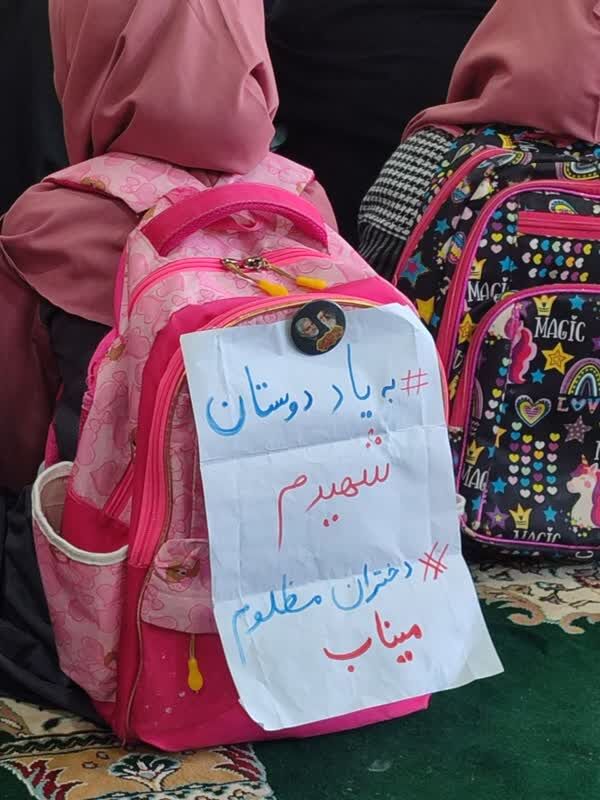 #به یاد دوستان
شهیدم
#دختران مظلوم
میناب
MAGIC
MAGIC
LOVE
MAGIC
MAGIC